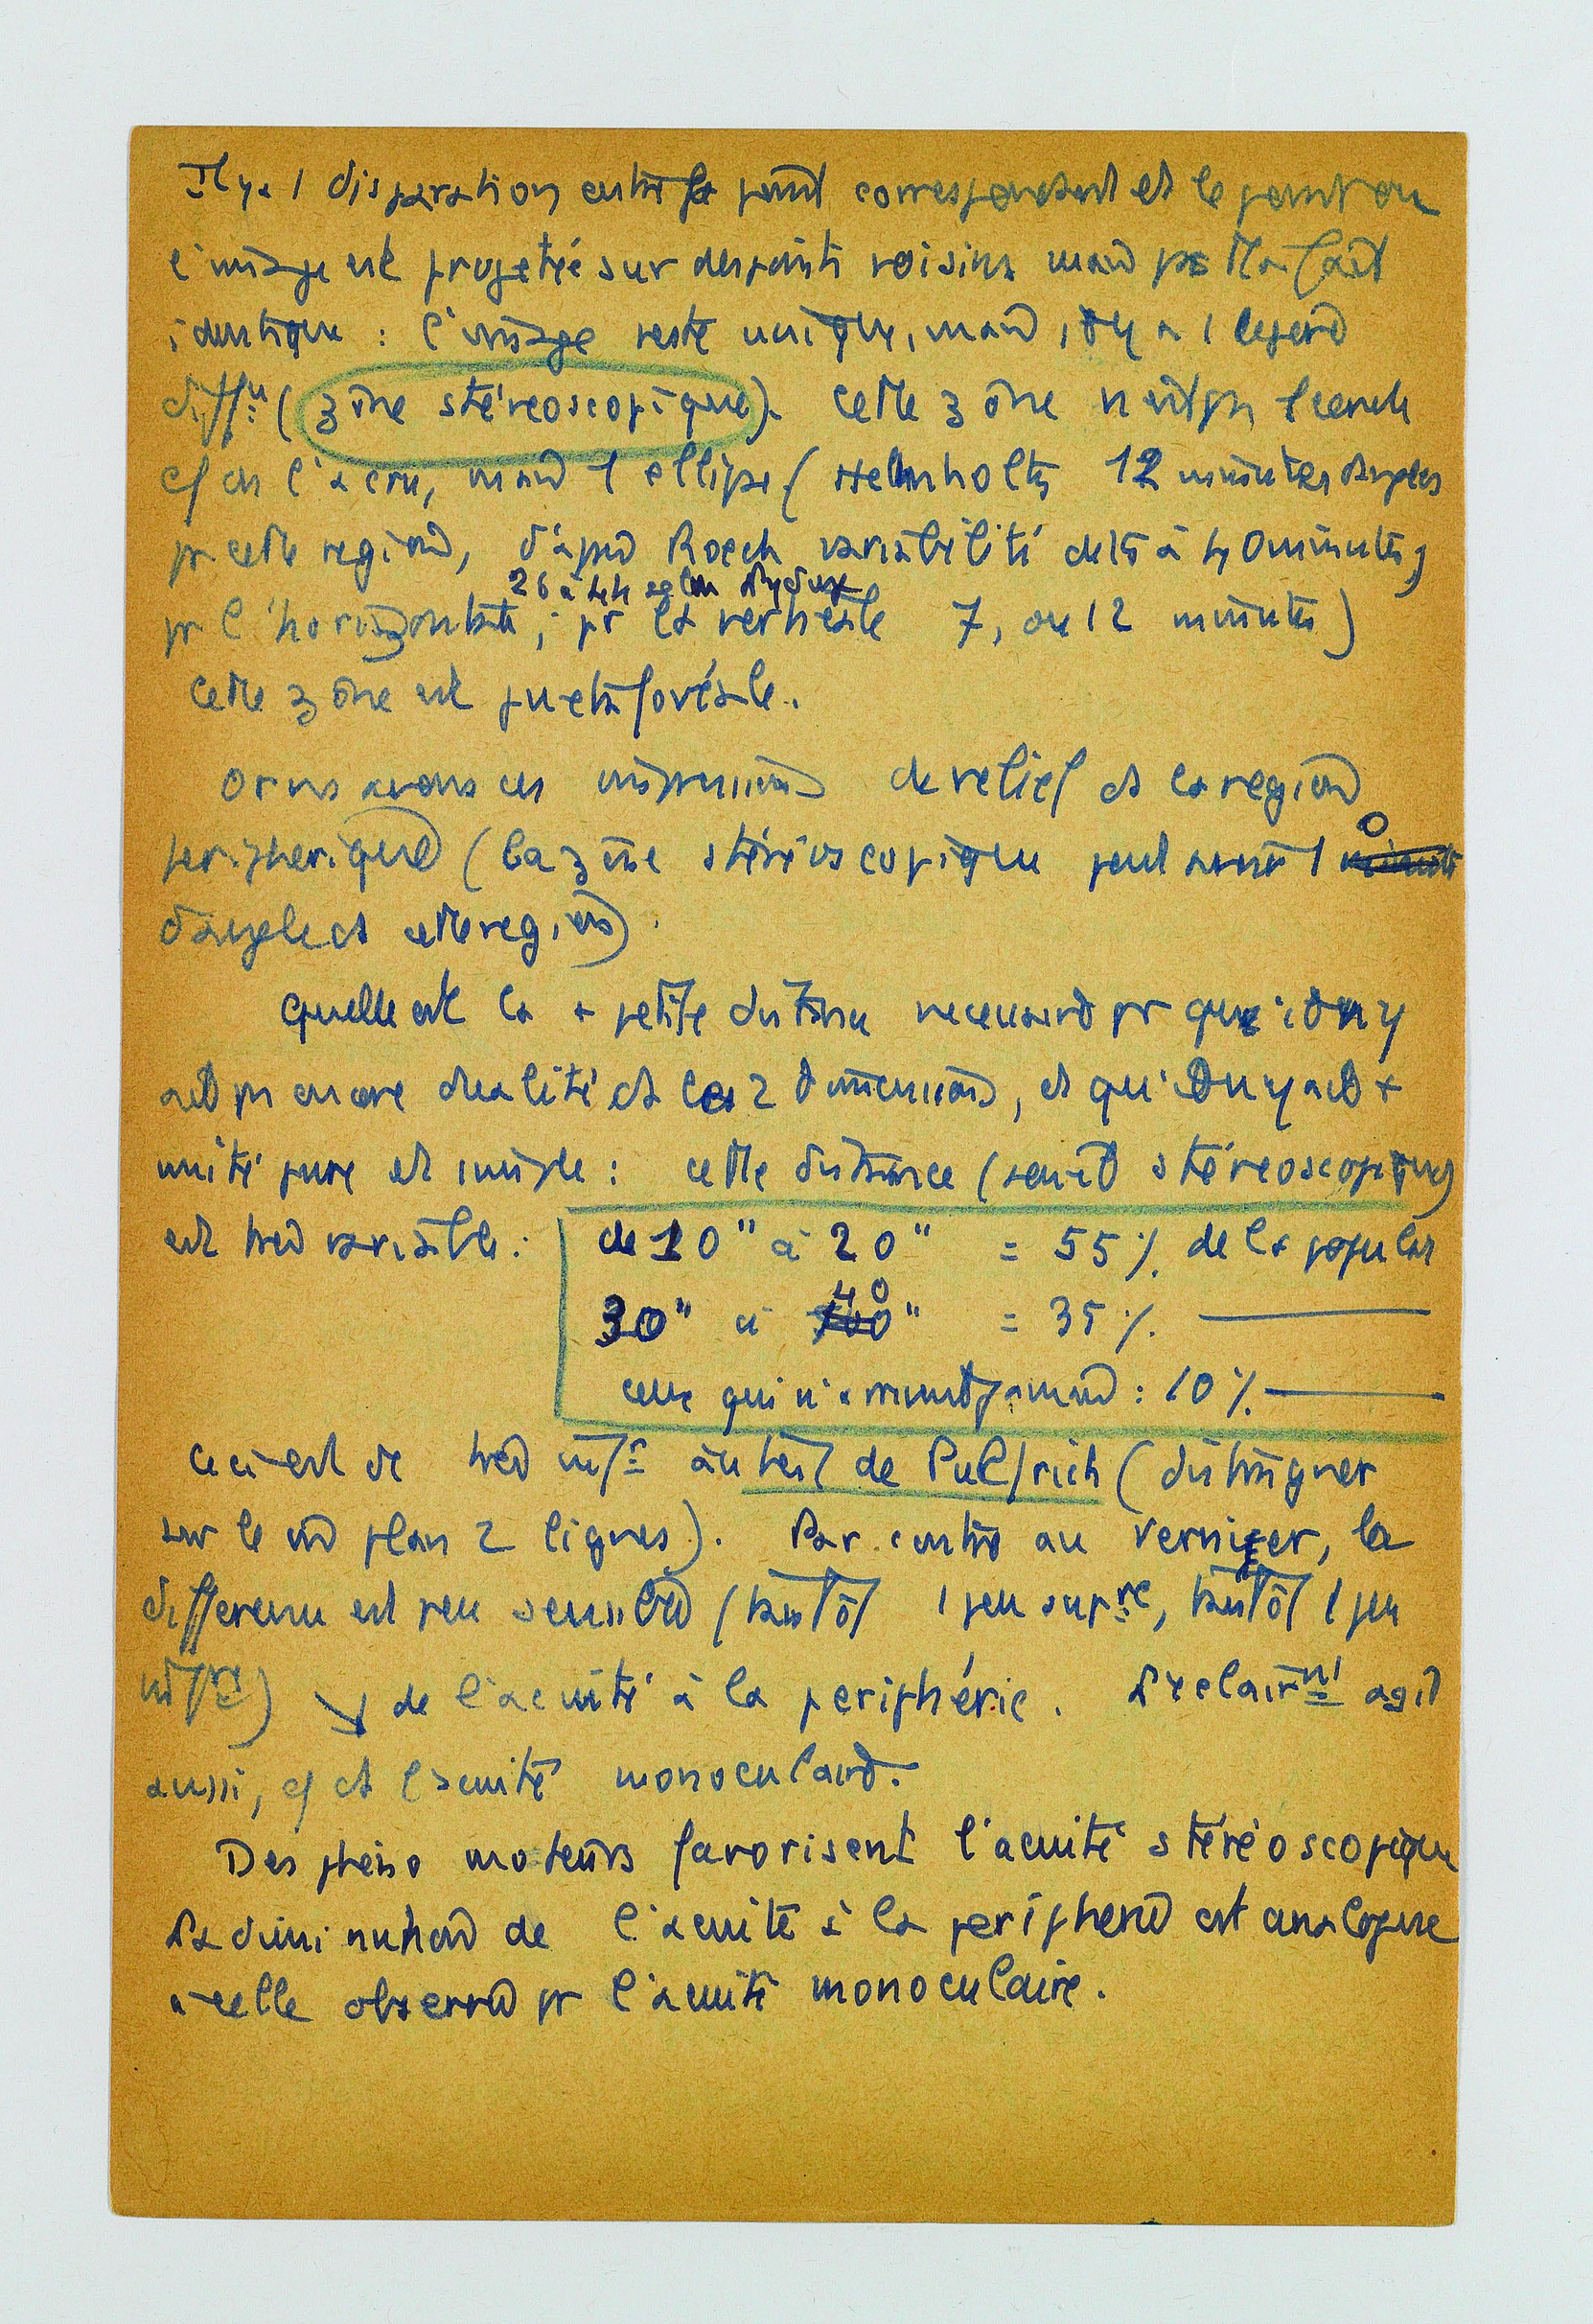 Il y a 1 disparation entre le point correspondant et le point où
l'image est projetée sur des points voisins mais pas tt à fait
identique : l'image reste unique, mais il y a 1 legere
diffce (zône stéreoscopique). Cette zône n'est pas 1 cercle
c/ on l'a cru, mais 1 ellipse (Helmholtz 12 minutes
pr cette region, d'apres variabilité de 15 à 40 minutes,
26 à selon
pr l'horizontale, pr la verticale 7, ou 12 minutes)
Cette zône est juxtafovéale.
Or ns avons des impressions de relief ds la region
peripherique (la zône stéréoscopique peut avoir 1°
d'angle ds cette region).
Quelle est la + petite distance necessaire pr qu'il n'y
ait pas encore dualité ds les 2 dimensions, et qu'il n'y ait +
unité pure et simple : cette distance (seuil stéreoscopique)
est tres variable : de 10" à 20" = 55% de la popula
30" à 40" = 35% ———
ceux qui n'arrivent jamais : 10% ———
Ceci est de tres infr au test de Pulfrich (distinguer
sur le mê plan 2 lignes). Par contre au vernier, la
difference est peu sensible (tantôt 1 peu supre, tantôt 1 peu
infre) ↘ de l'acuité à la periphérie. L'eclairmt agit
aussi, c/ ds l'acuité monoculaire.
Des phéno moteurs favorisent l'acuité stéréoscopique
La diminution de l'acuité à la peripherie est analogue
à celle observée pr l'acuité monoculaire.